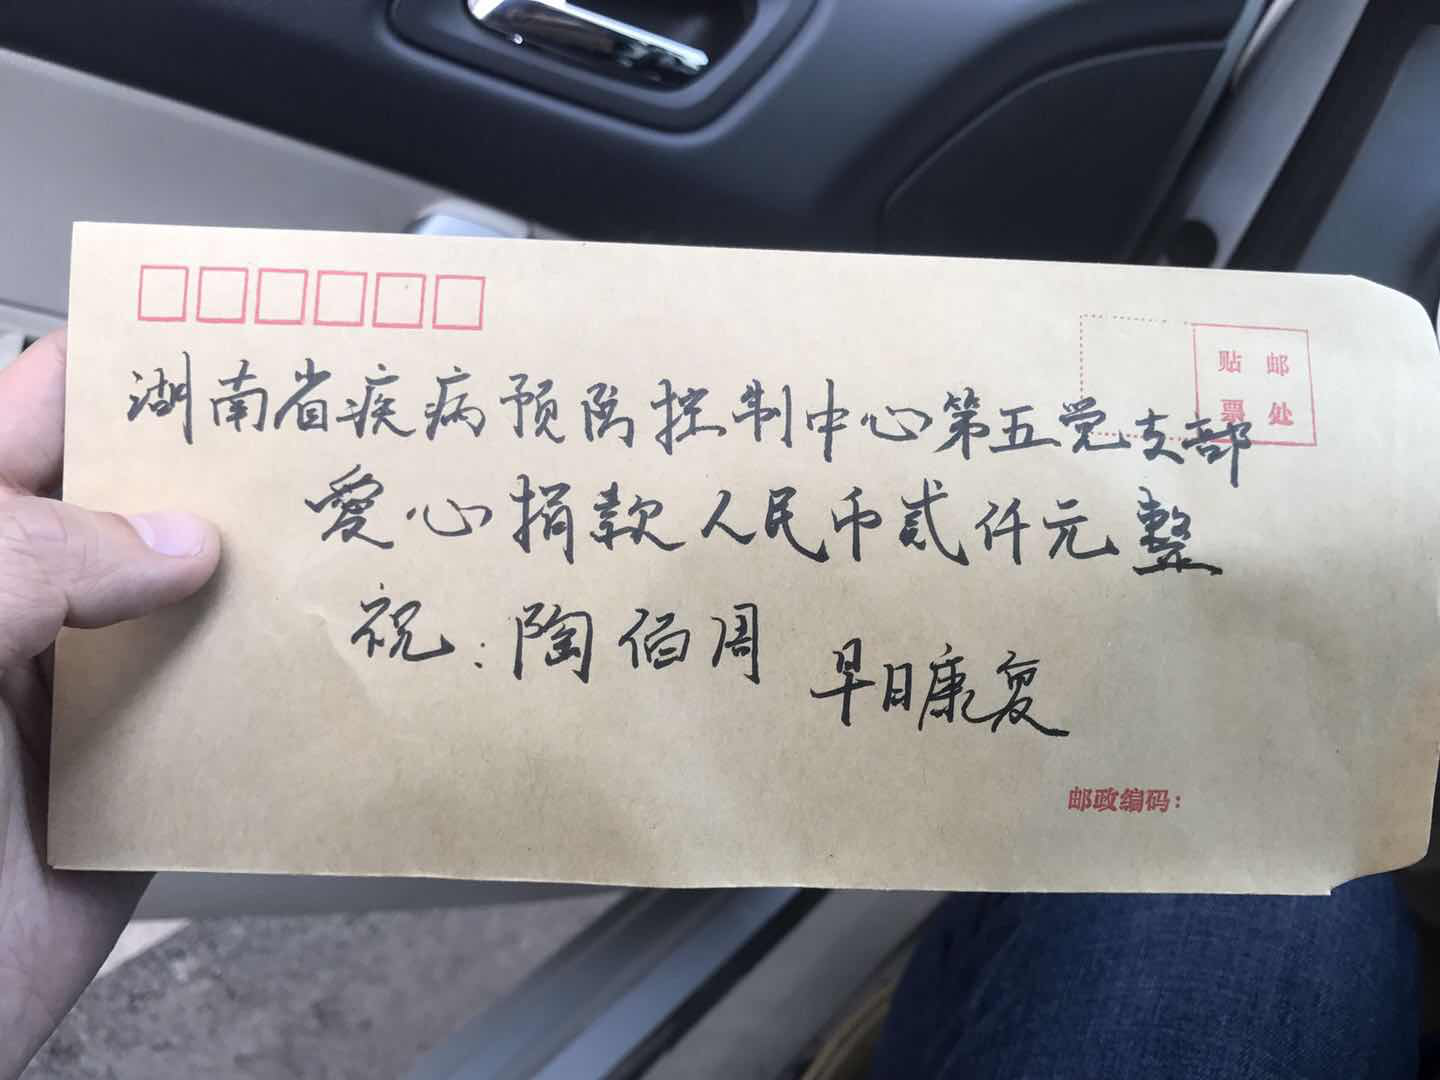 贴 邮
票 处
湖南省疾病预防控制中心第五党支部
愛心捐款人民币贰仟元整
祝:陶佰周
早日康复
邮政编码: